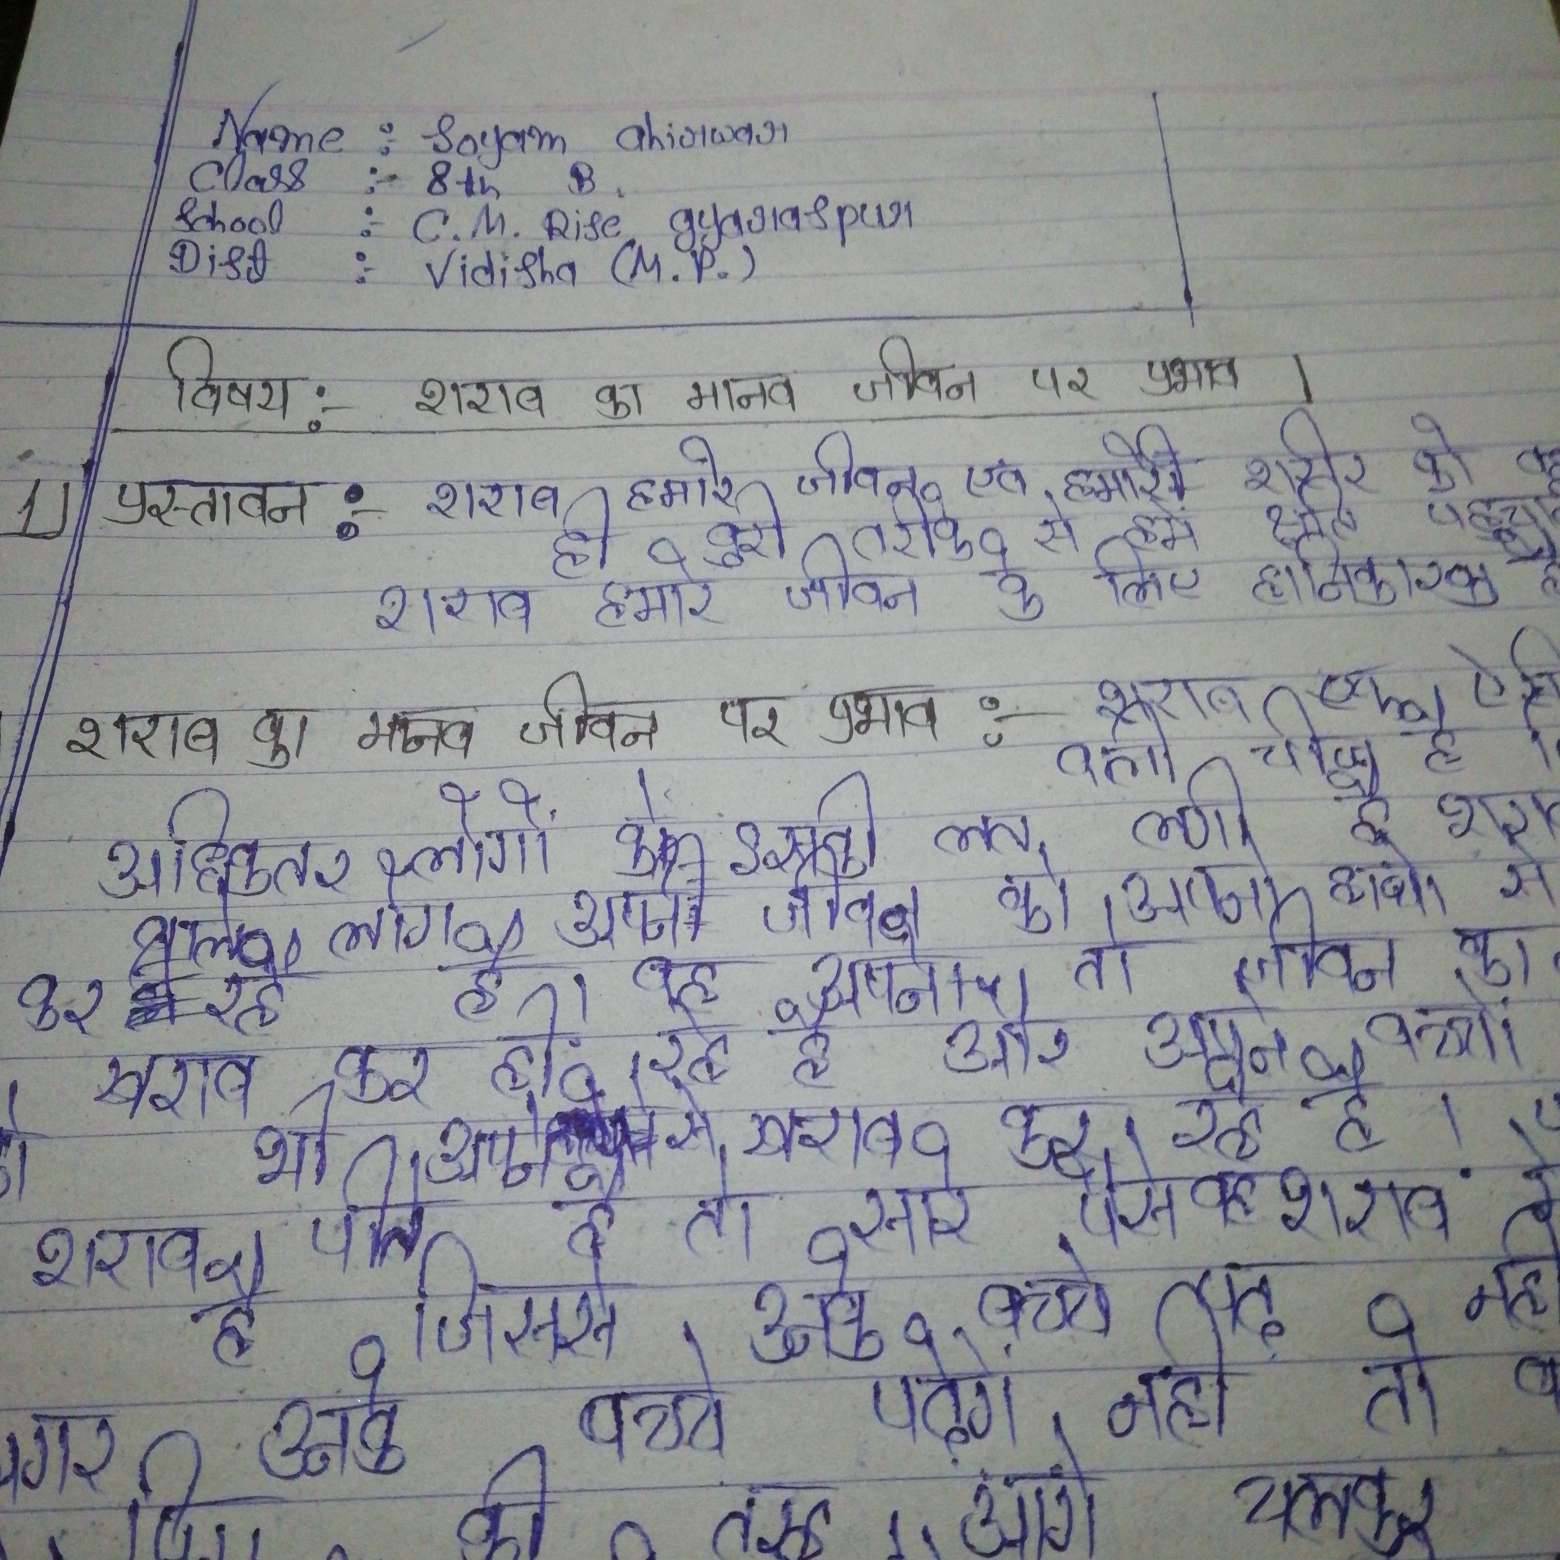 Name : Soyam ahirwar
Class :- 8th B.
School :- C.M. Rise gyaraspur
Dist :- Vidisha (M.P.)
विषय :- शराब का मानव जीवन पर प्रभाव ।
1) प्रस्तावन :- शराब हमारे जीवन एवं हमारे शरीर को
ही बुरी तरीके से हमें
शराब हमारे जीवन के लिए हानिकारक
शराब का मानव जीवन पर प्रभाव :- शराब एक
वली चीज है
अधिकतर लोगों को इसकी लत लगी है
वाले लोग अपने जीवन को अपने हाथो से
कर रहे है । वह अपना तो जीवन का
खराब कर ही रहे है और अपने बच्चों
भी अपने से खराब कर रहे है ।
शराब पीते है तो सारे पैसे वह शराब
है जिससे उनके बच्चे पढ़ नही
उनके बच्चे पढ़ेगें नही तो
की तरह आगे चलकर